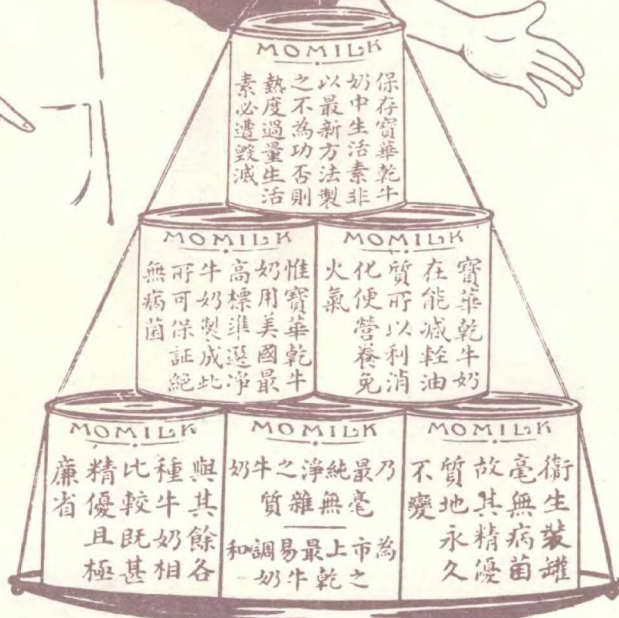 MOMILK
保存寶華乾牛
奶中生活素非
以最新方法製
之不為功否則
熱度過量生活
素必遭毀滅
MOMILK
惟寶華乾牛
奶用美國最
高標準選淨
牛奶製成此
所可保証絕
無病菌
MOMILK
寶華乾牛奶
在能減輕油
質所以利消
化便營養免
火氣
MOMILK
與其餘各
種牛奶相
比較既甚
精優且極
廉省
MOMILK
乃最純淨之牛奶
毫無雜質
為市上最易調和
之乾牛奶
MOMILK
衛生裝罐
毫無病菌
故其精優
質地永久
不變